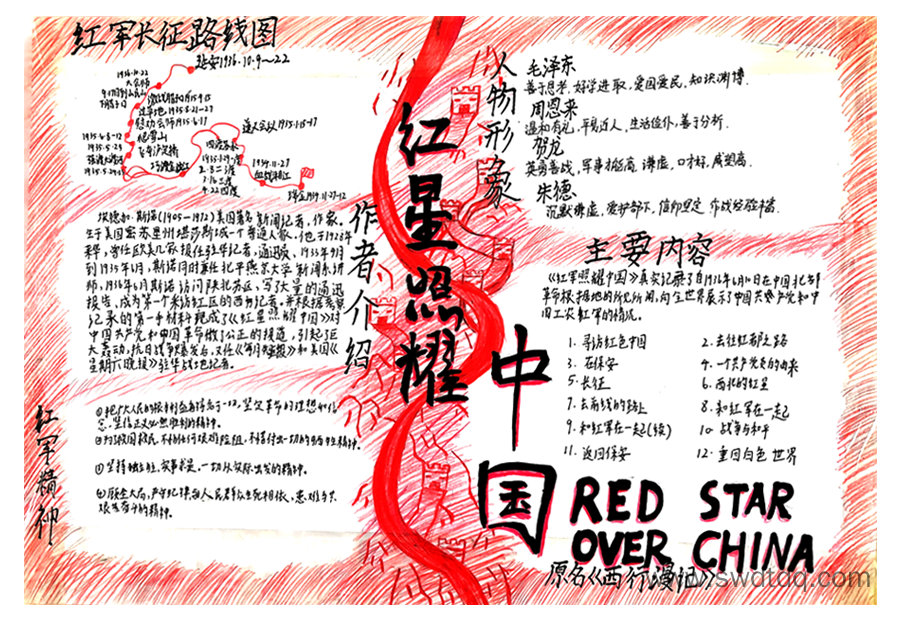 红军长征路线图
延安1936.10.9~22
过草地1935.8.21-27
1935.5.29
遵义会议1935.1.15-17
血战湘江
红星照耀
中国
人物形象
毛泽东
善于思考,好学进取,爱国爱民,知识渊博.
周恩来
温和有礼,平易近人,生活俭朴,善于分析.
贺龙
英勇善战,军事才能高,谦虚,口才好,威望高.
朱德
沉默谦虚,爱护部下,信仰坚定,作战经验丰富.
作者介绍
埃德加·斯诺(1905-1972)美国著名新闻记者,作家.
生于美国密苏里州堪萨斯城一个普通人家.他于1928年
来华,曾任欧美几家报社驻华记者,通讯员.1933年4月
到1935年6月,斯诺同时兼任北平燕京大学新闻系讲
师,1936年6月斯诺访问陕北苏区,写了大量的通讯
报告,成为第一个采访红区的西方记者.
记录的第一手材料完成了《红星照耀中国》对
中国共产党和中国革命做了公正的报道,引起巨
大轰动.抗日战争爆发后,又任《每日先驱报》和美国《
星期六晚报》驻华战地记者.
主要内容
《红星照耀中国》真实记录了自1936年6月至10月在中国西北部
革命根据地的所见所闻,向全世界展示了中国共产党和中
国工农红军的情况.
1. 寻访红色中国
2. 去往红都之路
3. 在保安
4. 一个共产党员的由来
5. 长征
6. 西北的红星
7. 去前线的路上
8. 和红军在一起
9. 和红军在一起(续)
10. 战争与和平
11. 返回保安
12. 重回白色世界
红军精神
①把广大人民的根本利益看得高于一切,坚定革命的理想和信
念,坚信正义必然胜利的精神.
②为了救国救民,不怕任何艰难险阻,不惜付出一切的牺牲精神.
③坚持独立自主,实事求是,一切从实际出发的精神.
④顾全大局,严守纪律,与人民群众生死相依,患难与共
艰苦奋斗的精神.
RED STAR
OVER CHINA
原名《西行漫记》
www.swdtdq.com